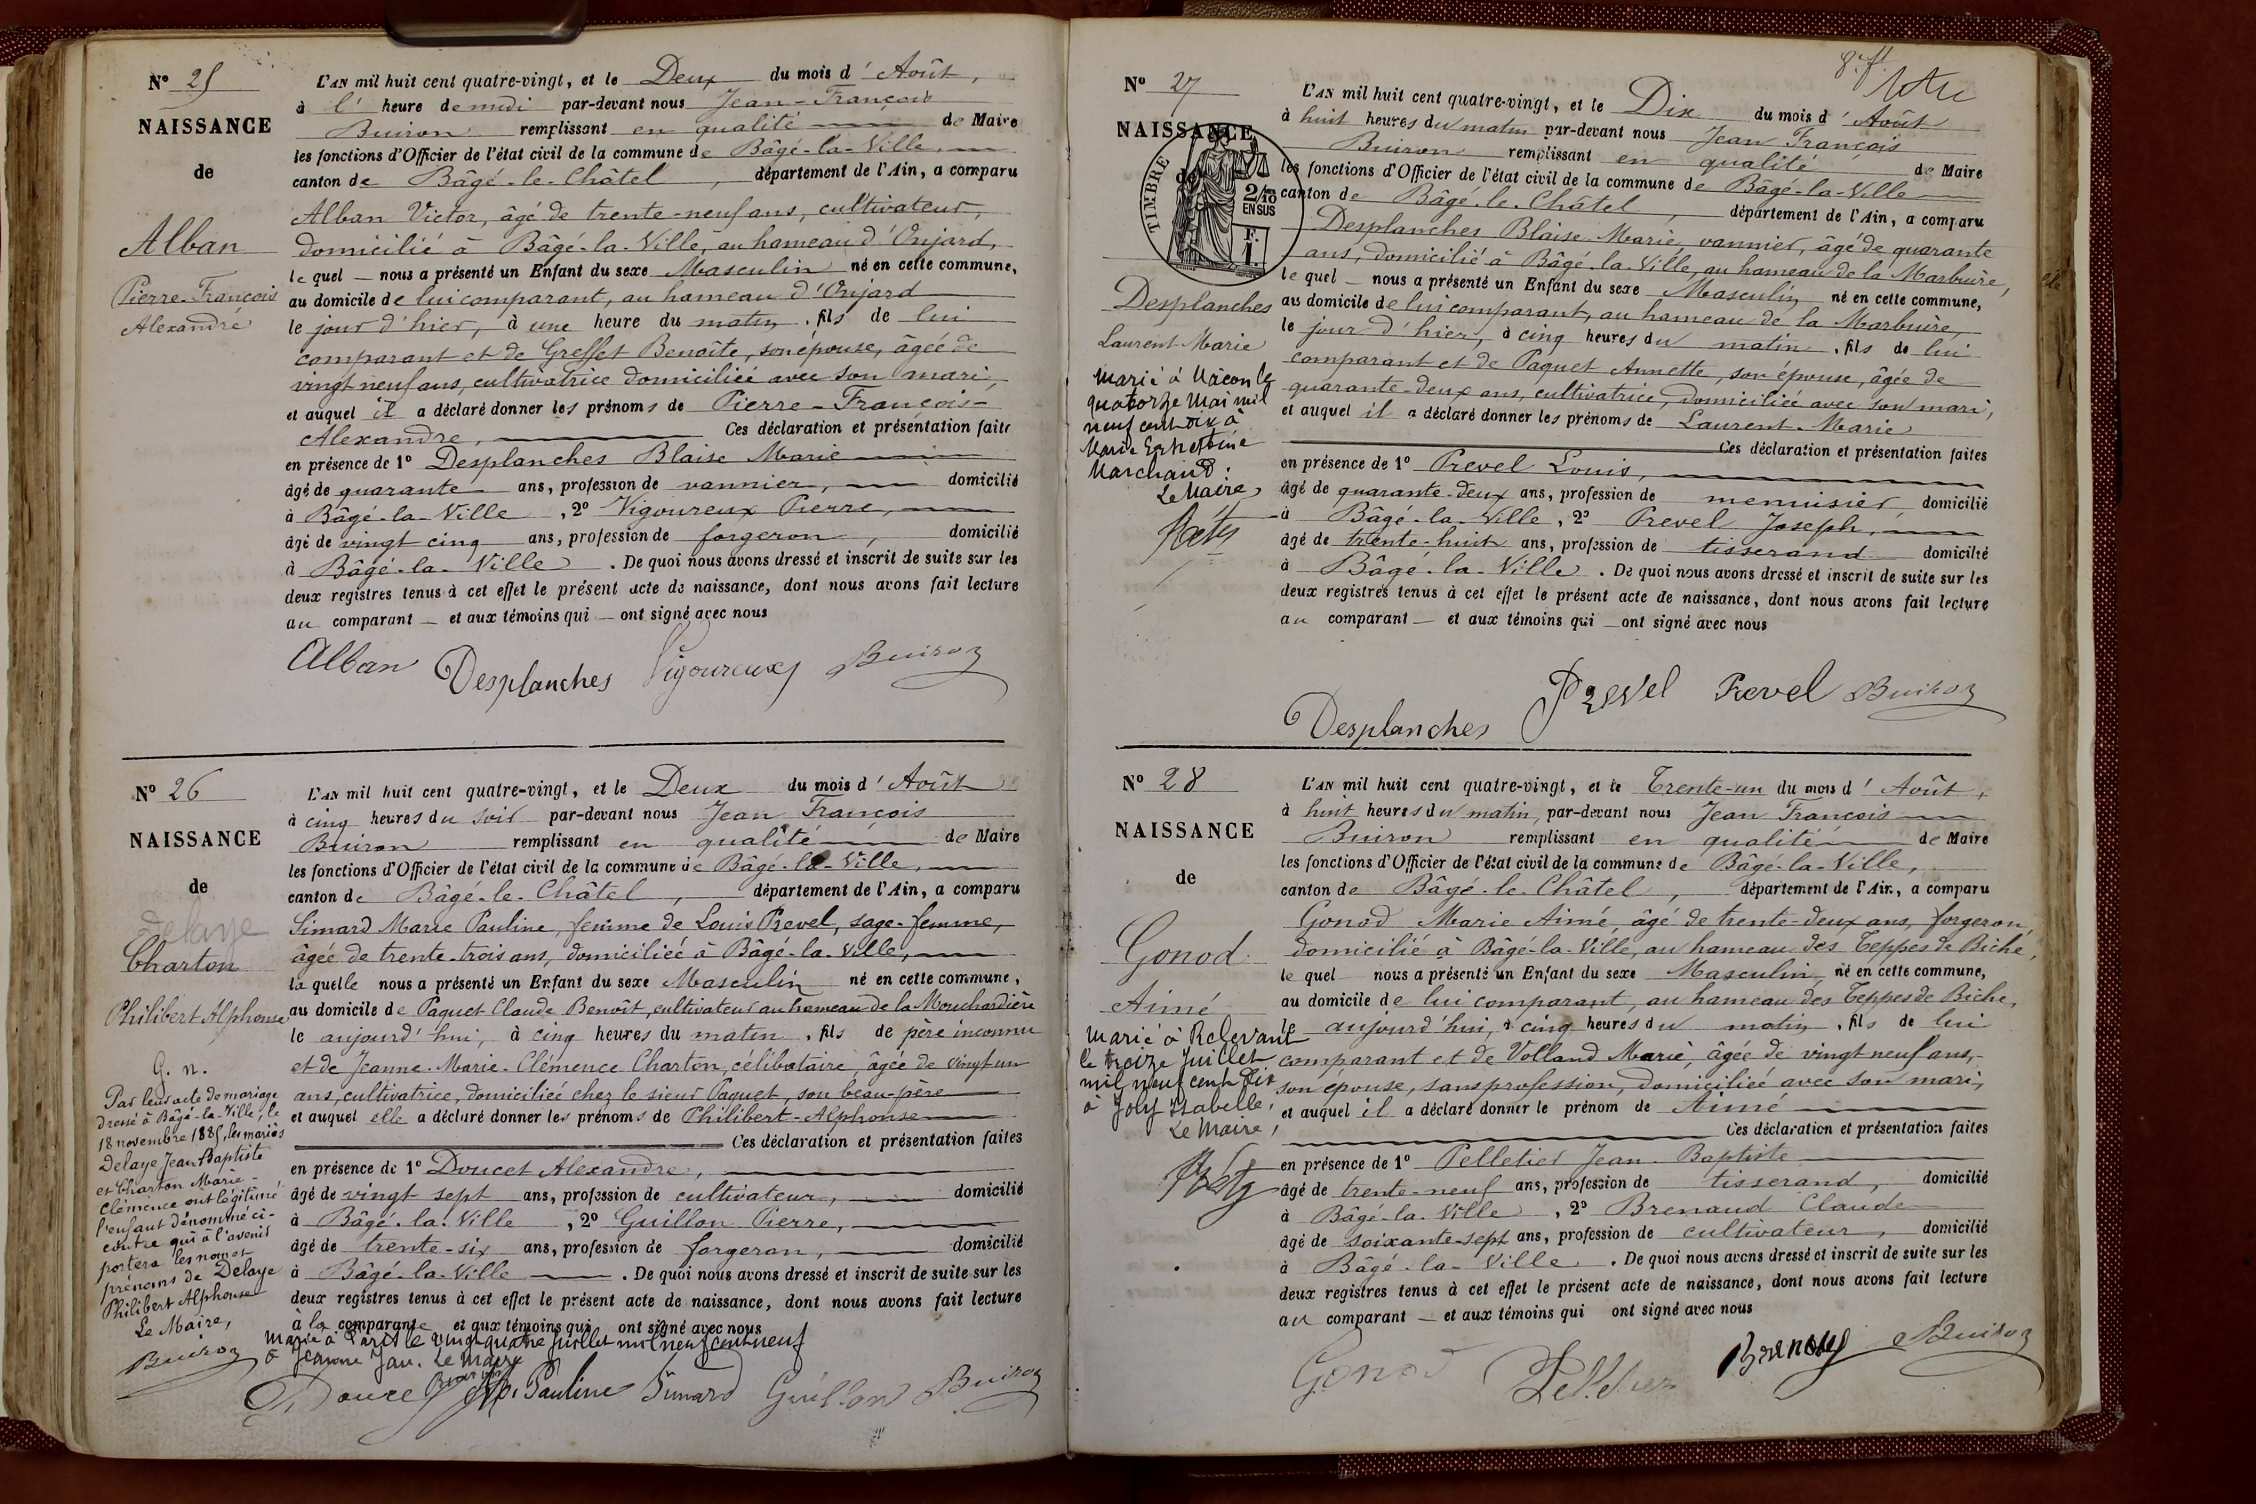 N° 25
NAISSANCE
de
Alban
Pierre-François
Alexandre
L'AN mil huit cent quatre-vingt, et le Deux du mois d'Août,
à l'heure de midi par-devant nous Jean-François
Buiron remplissant en qualité de Maire
les fonctions d'Officier de l'état civil de la commune de Bâgé-la-Ville,
canton de Bâgé-le-Châtel, département de l'Ain, a comparu
Alban Victor, âgé de trente-neuf ans, cultivateur,
domicilié à Bâgé-la-Ville, au hameau d'Onjard,
le quel nous a présenté un Enfant du sexe Masculin né en cette commune,
au domicile de lui comparant, au hameau d'Onjard
le jour d'hier, à une heure du matin, fils de lui
comparant et de Greffet Benoîte, son épouse, âgée de
vingt neuf ans, cultivatrice domiciliée avec son mari,
et auquel il a déclaré donner les prénoms de Pierre-François-
Alexandre, Ces déclaration et présentation faites
en présence de 1° Desplanches Blaise Marie
âgé de quarante ans, profession de vannier, domicilié
à Bâgé-la-Ville, 2° Vigoureux Pierre,
âgé de vingt cinq ans, profession de forgeron, domicilié
à Bâgé-la-Ville. De quoi nous avons dressé et inscrit de suite sur les
deux registres tenus à cet effet le présent acte de naissance, dont nous avons fait lecture
au comparant et aux témoins qui ont signé avec nous
Alban Desplanches Vigoureux Buiron
N° 26
NAISSANCE
de
Delaye
Charton
Philibert Alphonse
G. n.
Par leur acte de mariage
dressé à Bâgé-la-Ville, le
18 novembre 1885, les mariés
Delaye Jean Baptiste
et Charton Marie-
Clémence ont légitimé
l'enfant dénommé ci-
contre qui à l'avenir
portera les nom et
prénoms de Delaye
Philibert Alphonse
Le Maire,
Buiron
L'AN mil huit cent quatre-vingt, et le Deux du mois d'Août
à cinq heures du soir par-devant nous Jean François
Buiron remplissant en qualité de Maire
les fonctions d'Officier de l'état civil de la commune de Bâgé-la-Ville,
canton de Bâgé-le-Châtel, département de l'Ain, a comparu
Simard Marie Pauline, femme de Louis Prevel, sage-femme,
âgée de trente-trois ans, domiciliée à Bâgé-la-Ville,
la quelle nous a présenté un Enfant du sexe Masculin né en cette commune,
au domicile de Paquet Claude Benoît, cultivateur au hameau de la Mouchardière
le aujourd'hui, à cinq heures du matin, fils de père inconnu
et de Jeanne-Marie-Clémence Charton, célibataire, âgée de vingt un
ans, cultivatrice, domiciliée chez le sieur Paquet, son beau-père
et auquel elle a déclaré donner les prénoms de Philibert-Alphonse
Ces déclaration et présentation faites
en présence de 1° Doucet Alexandre,
âgé de vingt sept ans, profession de cultivateur, domicilié
à Bâgé-la-Ville, 2° Guillon Pierre,
âgé de trente-six ans, profession de forgeron, domicilié
à Bâgé-la-Ville. De quoi nous avons dressé et inscrit de suite sur les
deux registres tenus à cet effet le présent acte de naissance, dont nous avons fait lecture
à la comparante et aux témoins qui ont signé avec nous
Marié à Paris le vingt quatre Juillet mil neuf cent neuf
à Jeanne Jau. Le Maire
Doucet Pauline Simard Guillon Buiron
N° 27
NAISSANCE
de
TIMBRE
2/10
EN SUS
F.
1.
Desplanches
Laurent Marie
Marié à Mâcon le
quatorze Mai mil
neuf cent dix à
Marie Ernestine
Marchand.
Le Maire,
L'AN mil huit cent quatre-vingt, et le Dix du mois d'Août
à huit heures du matin par-devant nous Jean François
Buiron remplissant en qualité de Maire
les fonctions d'Officier de l'état civil de la commune de Bâgé-la-Ville
canton de Bâgé-le-Châtel, département de l'Ain, a comparu
Desplanches Blaise Marie, vannier, âgé de quarante
ans, domicilié à Bâgé-la-Ville, au hameau de la Marbuire,
le quel nous a présenté un Enfant du sexe Masculin né en cette commune,
au domicile de lui comparant, au hameau de la Marbuire,
le jour d'hier, à cinq heures du matin, fils de lui
comparant et de Paquet Annette, son épouse, âgée de
quarante-deux ans, cultivatrice, domiciliée avec son mari,
et auquel il a déclaré donner les prénoms de Laurent-Marie
Ces déclaration et présentation faites
en présence de 1° Prevel Louis,
âgé de quarante-deux ans, profession de menuisier domicilié
à Bâgé-la-Ville, 2° Prevel Joseph,
âgé de trente-huit ans, profession de tisserand domicilié
à Bâgé-la-Ville. De quoi nous avons dressé et inscrit de suite sur les
deux registres tenus à cet effet le présent acte de naissance, dont nous avons fait lecture
au comparant et aux témoins qui ont signé avec nous
Desplanches Prevel Prevel Buiron
N° 28
NAISSANCE
de
Gonod
Aimé
Marié à Relevant
le treize Juillet
mil neuf cent dix
à Joly Isabelle,
Le Maire,
L'AN mil huit cent quatre-vingt, et le Trente-un du mois d'Août,
à huit heures du matin, par-devant nous Jean François
Buiron remplissant en qualité de Maire
les fonctions d'Officier de l'état civil de la commune de Bâgé-la-Ville,
canton de Bâgé-le-Châtel, département de l'Ain, a comparu
Gonod Marie Aimé, âgé de trente-deux ans, forgeron,
domicilié à Bâgé-la-Ville, au hameau des Teppes de Biche,
le quel nous a présenté un Enfant du sexe Masculin né en cette commune,
au domicile de lui comparant, au hameau des Teppes de Biche,
le aujourd'hui, à cinq heures du matin, fils de lui
comparant et de Volland Marie, âgée de vingt neuf ans,
son épouse, sans profession, domiciliée avec son mari,
et auquel il a déclaré donner le prénom de Aimé
Ces déclaration et présentation faites
en présence de 1° Pelletier Jean-Baptiste
âgé de trente-neuf ans, profession de tisserand, domicilié
à Bâgé-la-Ville, 2° Brenaud Claude
âgé de soixante-sept ans, profession de cultivateur, domicilié
à Bâgé-la-Ville. De quoi nous avons dressé et inscrit de suite sur les
deux registres tenus à cet effet le présent acte de naissance, dont nous avons fait lecture
au comparant et aux témoins qui ont signé avec nous
Gonod Pelletier Buiron